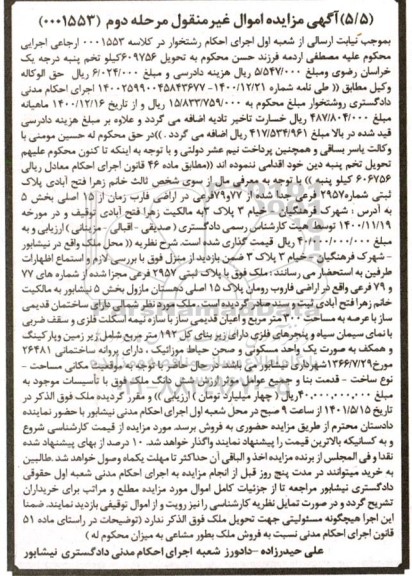 (۵/۵) آگهی مزایده اموال غیرمنقول مرحله دوم (۰۰۰۱۵۵۳)
بموجب نیابت ارسالی از شعبه اول اجرای احکام رشتخوار در کلاسه ۰۰۰۱۵۵۳ ارجاعی اجرایی
محکوم علیه مصطفی اردمه فرزند حسن محکوم به تحویل ۶۰۹۷۵۶ کیلو تخم پنبه درجه یک
خراسان رضوی ومبلغ ۵/۵۴۷/۰۰۰ ریال هزینه دادرسی و مبلغ ۶/۰۲۴/۰۰۰ ریال حق الوکاله
وکیل مطابق (( طی نامه شماره ۱۴۰۰۲۵۹۹۰۰۴۵۸۴۳۶۷۷ - ۱۴۰۰/۱۲/۲۱ اجرای احکام مدنی
دادگستری روشتخوار مبلغ محکوم به ۱۵/۸۳۳/۷۵۹/۰۰۰ ریال و از تاریخ ۱۴۰۰/۱۲/۱۶ ماهیانه
مبلغ ۴۸۷/۸۰۴/۰۰۰ ریال خسارت تاخیر تادیه اضافه می گردد و علاوه بر مبلغ هزینه دادرسی
قید شده در بالا مبلغ ۴۱۷/۵۳۴/۹۶۱ ریال اضافه می گردد .))در حق محکوم له حسین مومنی با
وکالت یاسر بساقی و همچنین پرداخت نیم عشر دولتی و با توجه به اینکه تا کنون محکوم علیهم
تحویل تخم پنبه دین خود اقدامی ننموده اند ((مطابق ماده ۴۶ قانون اجرای احکام معادل ریالی
۶۰۶۷۵۶ کیلو پنبه )) با توجه به معرفی مال از سوی شخص ثالث خانم زهرا فتح آبادی پلاک
ثبتی شماره۲۹۵۷ فرعی جدا شده از ۷۷و۷۹فرعی در اراضی فارب زمان از ۱۵ اصلی بخش ۵
به آدرس : شهرک فرهنگیان – خیام ۳ پلاک ۳به مالکیت زهرا فتح آبادی توقیف و در مورخه
۱۴۰۰/۱۱/۱۹ توسط هیت کارشناس رسمی دادگستری ( صدیقی - اقبالی - مزینانی ) ارزیابی و به
مبلغ ۴۰/۰۰۰/۰۰۰/۰۰۰ ریال قیمت گذاری شده است. شرح نظریه (( محل ملک واقع در نیشابور
- شهرک فرهنگیان – خیام ۳ پلاک ۳ ضمن بازدید از منزل فوق با بررسی لازم و استماع اظهارات
طرفین به استحضار می رسانند : ملک فوق با پلاک ثبتی ۲۹۵۷ فرعی مجزا شده از شماره های ۷۷
و ۷۹ فرعی واقع در اراضی فاروب رومان پلاک ۱۵ اصلی دهستان مازول بخش ۵ نیشابور به مالکیت
خانم زهرا فتح آبادی ثبت و سند صادر گردیده است . ملک مورد نظر شمالی دارای ساختمان قدیمی
ساز با عرصه به مساحت ۳۰۰ متر مربع و اعیان قدیمی ساز با سازه نیمه اسکلت فلزی و سقف ضربی
با نمای سیمان سیاه و پنجرهای فلزی دارای زیر بنای کل ۱۹۲ متر مربع شامل زیر زمین وپارکینگ
و همکف به صورت یک واحد مسکونی و صحن حیاط موزائیک ، دارای پروانه ساختمانی ۲۶۴۸۱
مورخ۱۳۶۶/۷/۲۹شهرداری نیشابور می باشد . در حال حاضر با توجه به موقعیت مکانی مساحت -
نوع ساخت - قدمت بنا و جمیع عوامل موثر ارزش شش دانگ ملک فوق با تأسیسات موجود به
مبلغ ۴۰,۰۰۰,۰۰۰,۰۰۰ریال ( چهار میلیارد تومان ) ارزیابی )) و مقرر گردیده ملک فوق الذکر در
تاریخ ۱۴۰۱/۵/۱۵ از ساعت ۹ صبح در محل شعبه اول اجرای احکام مدنی نیشابور با حضور نماینده
دادستان محترم از طریق مزایده حضوری به فروش برسد. مورد مزایده از قیمت کارشناسی شروع
و به کسانیکه بالاترین قیمت را پیشنهاد نمایند واگذار خواهد شد. ۱۰ درصد از بهای پیشنهاد شده
نقدا و فی المجلس از برنده مزایده اخذ و الباقی آن حداکثر تا مهلت یکماه وصول خواهد شد .طالبین
به خرید میتوانند در مدت پنج روز قبل از انجام مزایده به اجرای احکام مدنی شعبه اول حقوقی
دادگستری نیشابور مراجعه تا از جزئیات کامل اموال مورد مزایده مطلع و مراتب برای خریداران
تشریح گردد و در صورت تمایل نظریه کارشناسی را نیز رویت و از اموال توقیفی بازدید نمایند. ضمنا
این اجرا هیچگونه مسئولیتی جهت تحویل ملک فوق الذکر ندارد (توضیحات در راستای ماده ۵۱
قانون اجرای احکام مدنی نسبت به فروش ملک بطور مشاعی به میزان محکوم له )
علی حیدرزاده – دادورز شعبه اجرای احکام مدنی دادگستری نیشابور